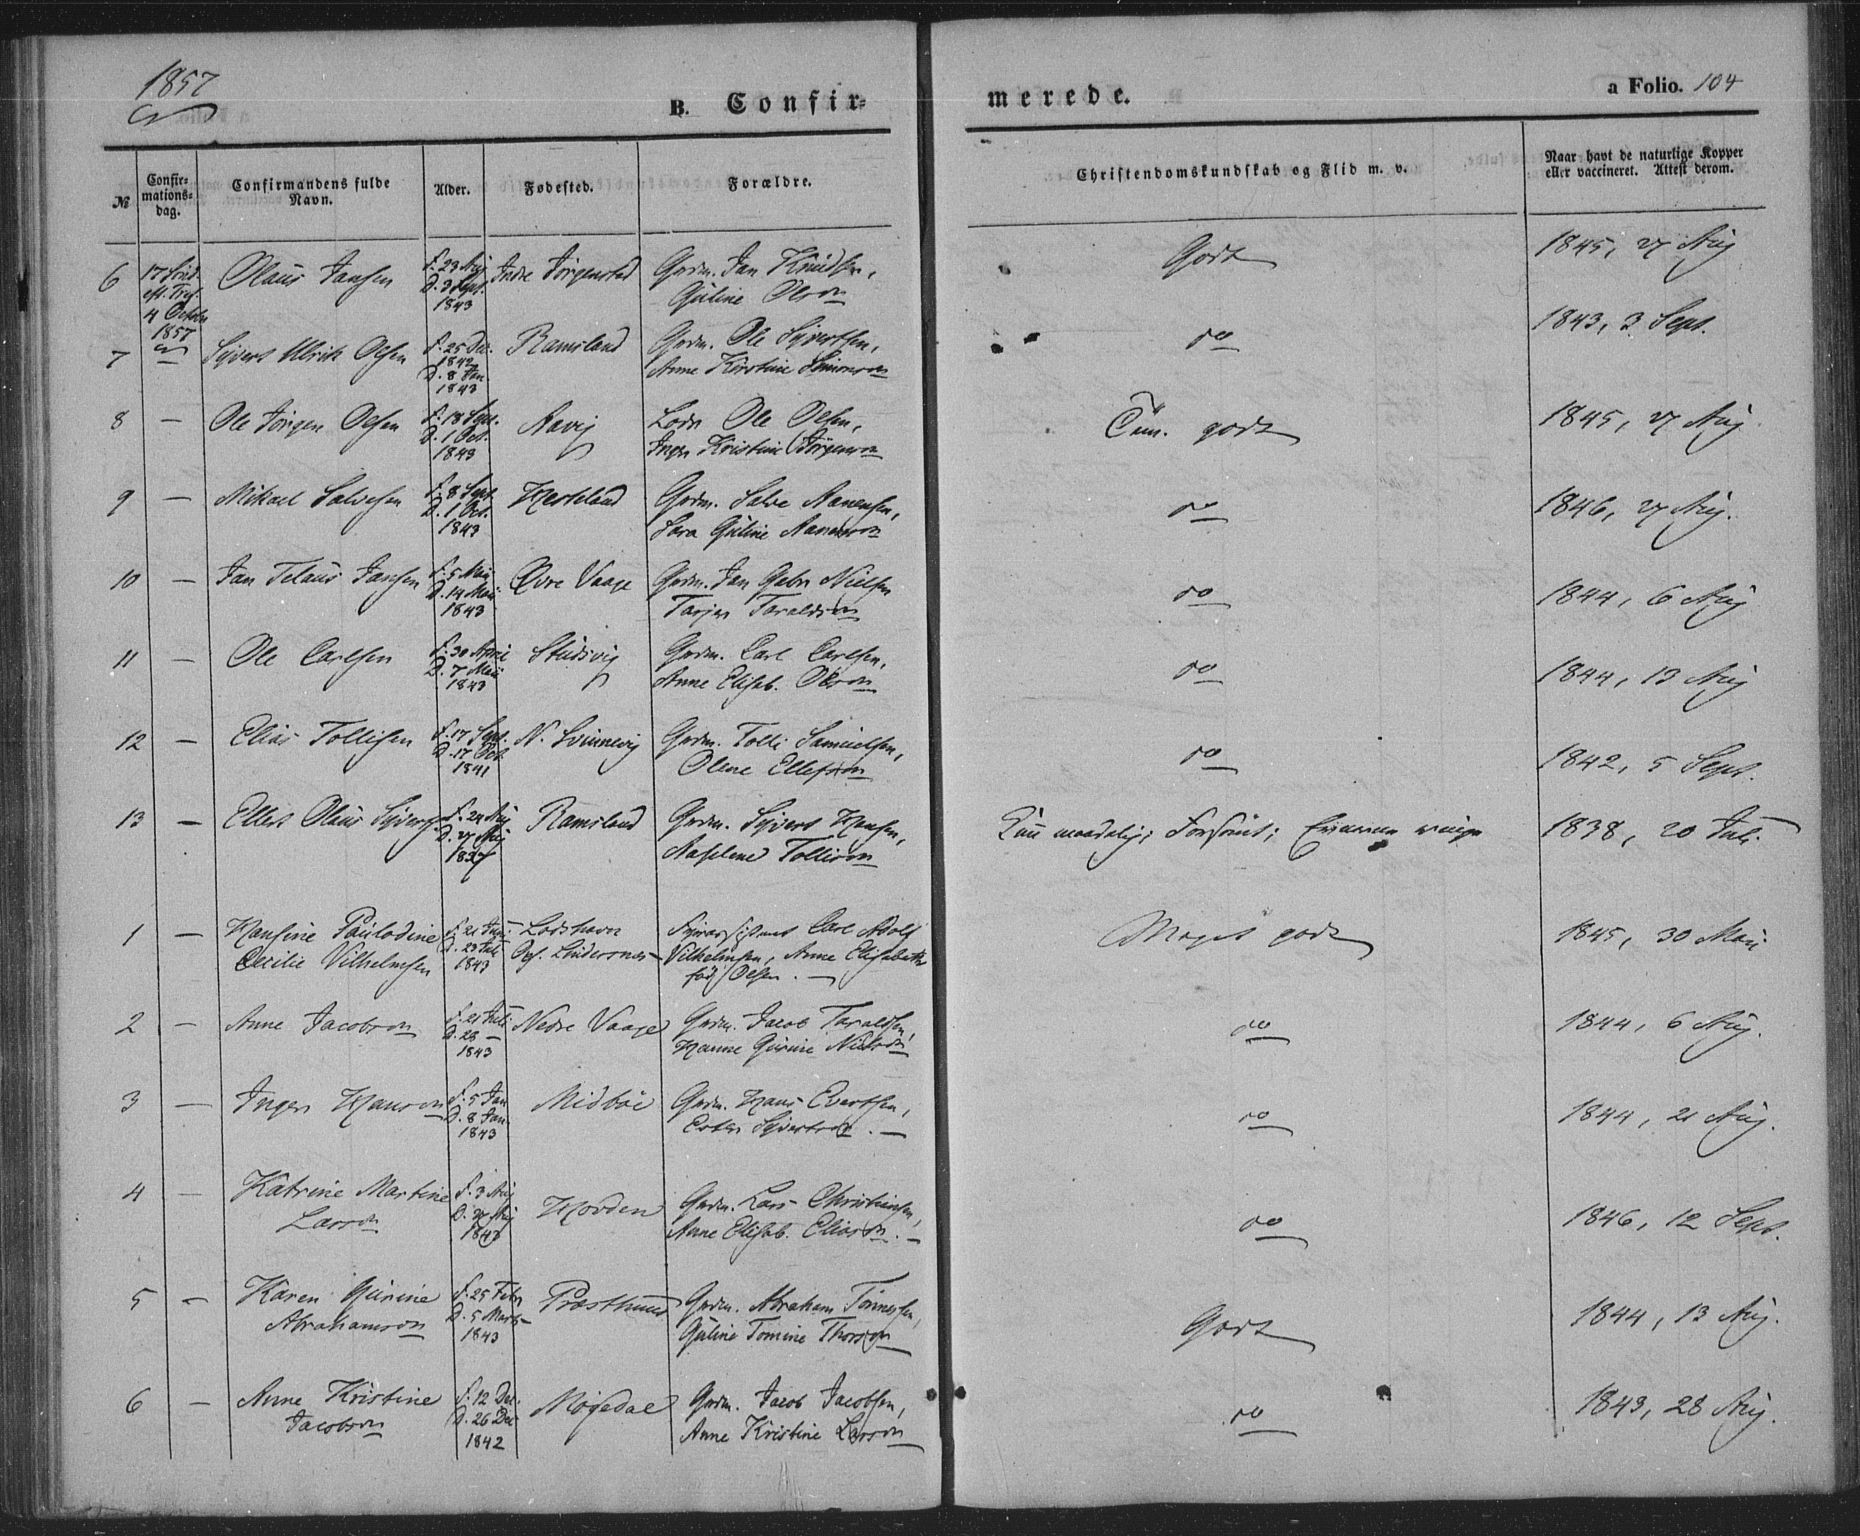 1857
B. Confir=
merede.
a Folio. 104
№
Confir=
mations=
dag.
Confirmandens fulde
Navn.
Alder.
Fødested.
Forældre.
Christendomskundskab og Flid m. v.
Naar havt de naturlige Kopper
eller vaccineret. Attest derom.
6
17 Sønd.
eft. Tref.
4 Octobr
1857
Olaus Jansen
f. 23 Aug
D. 3 Sept.
1843
Indre Jørgenstad
Grdm. Jan Knudsen,
Guline Olsdn
Godt
1845, 27 Aug
7
Syvert Ulrik Olsen
f. 25 Dec.
1842
D. 8 Jan
1843
Ramsland
Grdm. Ole Syvertsen,
Anne Kirstine Simonsdn
do
1843, 3 Sept.
8 —
Ole Jörgen Olsen
f. 18 Sept.
D. 1 Oct.
1843
Aavig
Lods Ole Olsen,
Inger Kristine Jörgensdn
Tem. godt
1845, 27 Aug
9 —
Mikael Salvesen
f. 8 Sept
D. 1 Oct.
1843
Heskeland
Grdm. Salve Aanensen,
Sara Guline Aanensdn
do
1846, 27 Aug.
10 —
Jan Telaus Jansen
f. 5 Mai
D. 14 Mai
1843
Øvre Vaage
Grdm. Jan Gabr Nielsen
Tarjer Taraldsdn
do
1844, 6 Aug
11 —
Ole Carlsen
f. 30 April
D. 7 Mai
1843
Studsvig
Grdm. Carl Carlsen,
Anne Elisab. Olsdn
do
1844, 13 Aug
12 —
Elias Tollisen
f. 17 Sept.
D. 17 Oct.
1841
N. Svinnevig
Grdm. Tolli Samuelsen,
Olene Ellefsdn
do
1842, 5 Sept.
13 —
Ellert Olaus Syvertsen
f. 24 Aug
D. 27 Aug
1837
Ramsland
Grdm. Syvert Hansen,
Aaselene Tollisdn
Kun maadelig; Forsømt; Evnerne ringe
1838, 20 Juli
1 —
Hansine Paulodine
Cecilie Vilhelmsen
f. 21 Juni
D. 23 Juli
1843
Lodshavn
Pgj. Lindersnes —
Fyrassistent Carl Adolf
Vilhelmsen, Anne Elisabeth
født Olsen. —
Meget godt
1845, 30 Mai
2 —
Anne Jacobsdn
f. 21 Juli
D. 28 —
1843
Nedre Vaage
Grdm. Jacob Taraldsen,
Hanne Gurine Nielsdn
do
1844, 6 Aug.
3 —
Inger Hansdn
f. 5 Jan
D. 8 Jan
1843
Midbøe
Grdm. Hans Evertsen,
Ester Syvertsdn. —
do
1844, 21 Aug.
4 —
Katrine Martine
Larsdn
f. 3 Aug
D. 27 Aug
1843
Hovden
Grdm. Lars Christiansen,
Anne Elisab. Eliasdn. —
do
1846, 12 Sept.
5 —
Karen Gurine
Abrahamsdn
f. 25 Febr
D. 5 Marts
1843
Præsthuus
Grdm. Abraham Tönnesen,
Guline Tomine Thorsdn
Godt
1844, 13 Aug.
6 —
Anne Kristine
Jacobsdn
f. 12 Dec.
D. 26 Dec
1842
Møgedal
Grdm. Jacob Jacobsen,
Anne Kristine Larsdn
do
1843, 28 Aug.